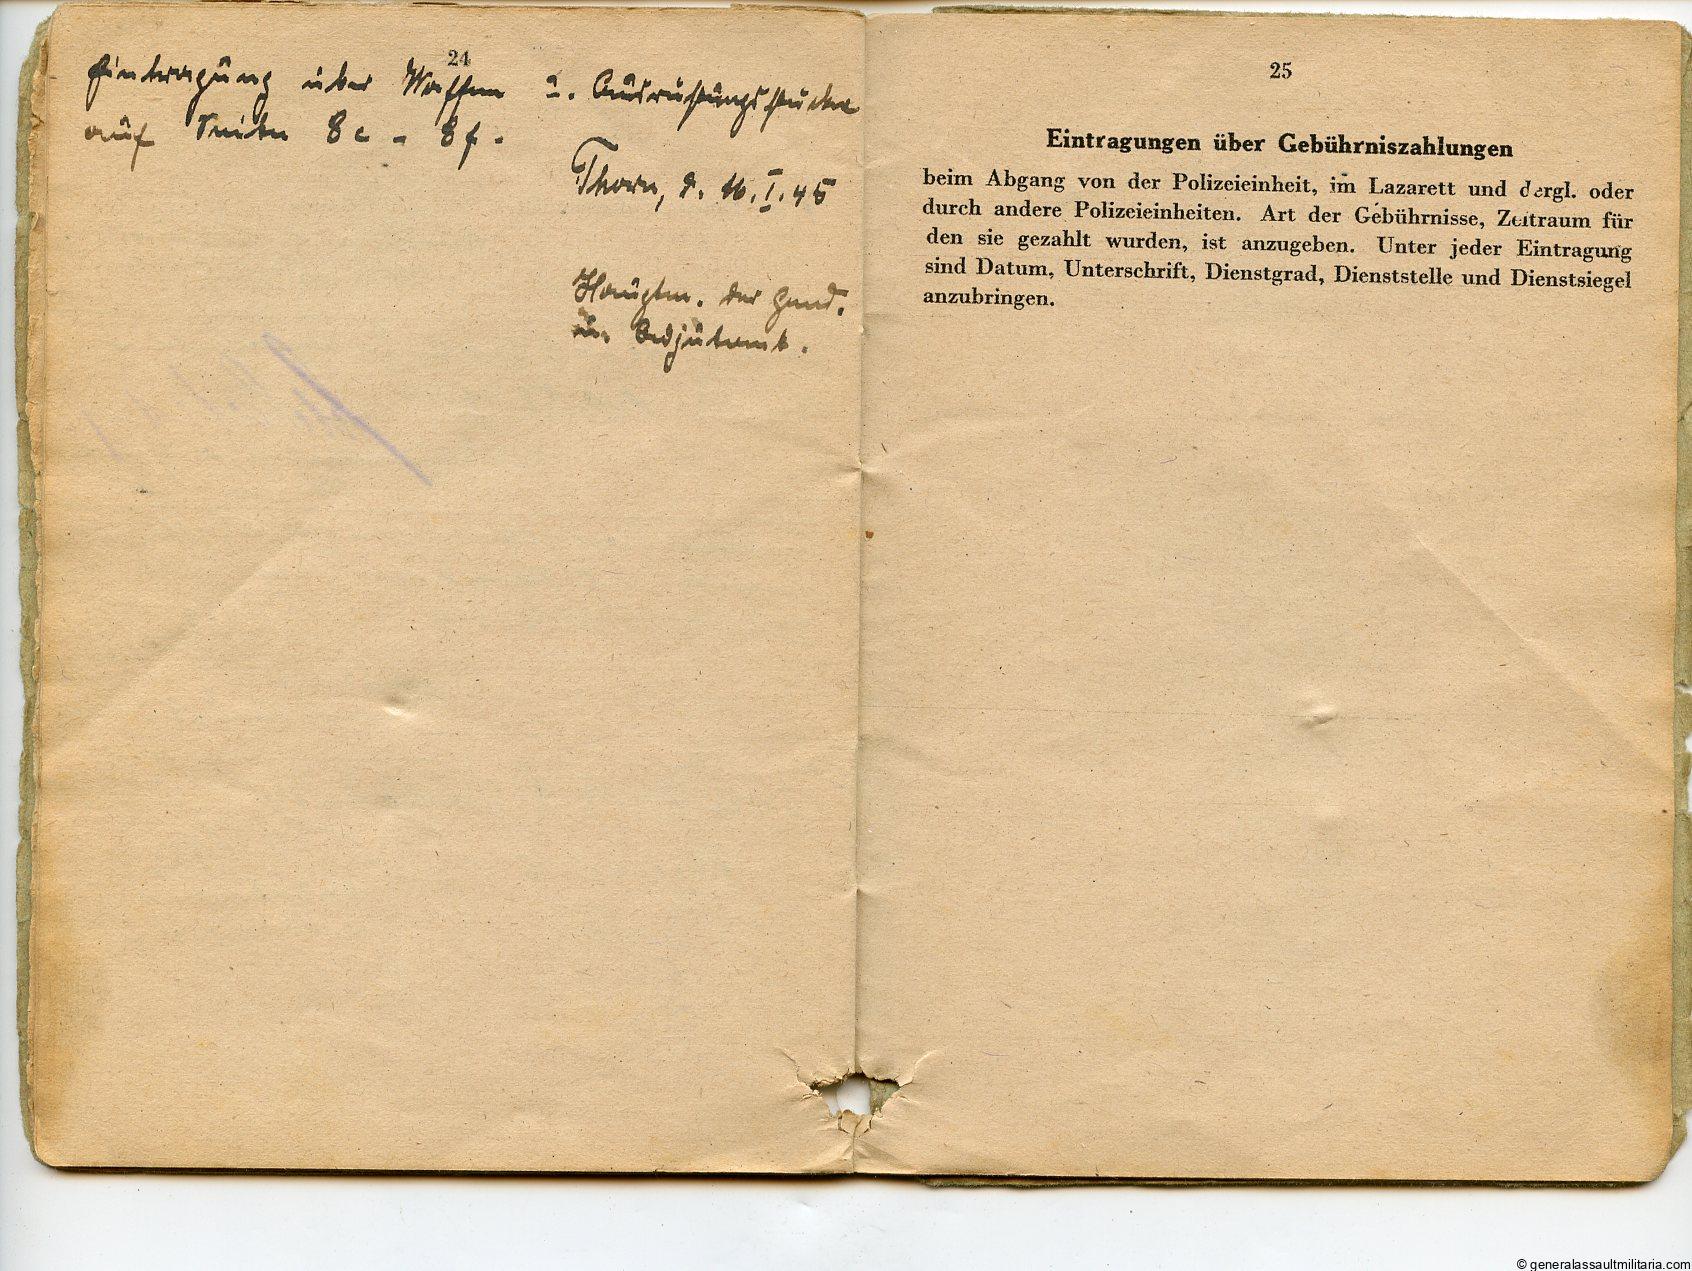 24
Eintragung über Waffen u. Ausrüstungsstücke
auf Seite 8c - 8f.
Thorn, d. 16.I.45
Hauptm. der Gend.
u. Adjutant.
25
Eintragungen über Gebührniszahlungen
beim Abgang von der Polizeieinheit, im Lazarett und dergl. oder
durch andere Polizeieinheiten. Art der Gebührnisse, Zeitraum für
den sie gezahlt wurden, ist anzugeben. Unter jeder Eintragung
sind Datum, Unterschrift, Dienstgrad, Dienststelle und Dienstsiegel
anzubringen.
© generalassaultmilitaria.com